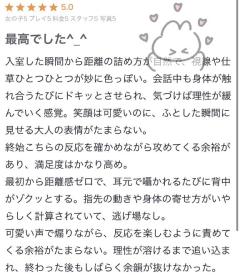 ★★★★★ 5.0
女の子5 プレイ5 料金5 スタッフ5 写真5
最高でした^_^
入室した瞬間から距離の詰め方が自然で、視線や仕
草ひとつひとつが妙に色っぽい。会話中も身体が触
れ合うたびにドキッとさせられ、気づけば理性が緩
んでいく感覚。笑顔は可愛いのに、ふとした瞬間に
見せる大人の表情がたまらない。
終始こちらの反応を確かめながら攻めてくる余裕が
あり、満足度はかなり高め。
最初から距離感ゼロで、耳元で囁かれるたびに背中
がゾクッとする。指先の動きや身体の寄せ方がいや
らしく計算されていて、逃げ場なし。
可愛い声で煽りながら、反応を楽しむように責めて
くる余裕がたまらない。理性が溶けるまで追い込ま
れ、終わった後もしばらく余韻が抜けなかった。